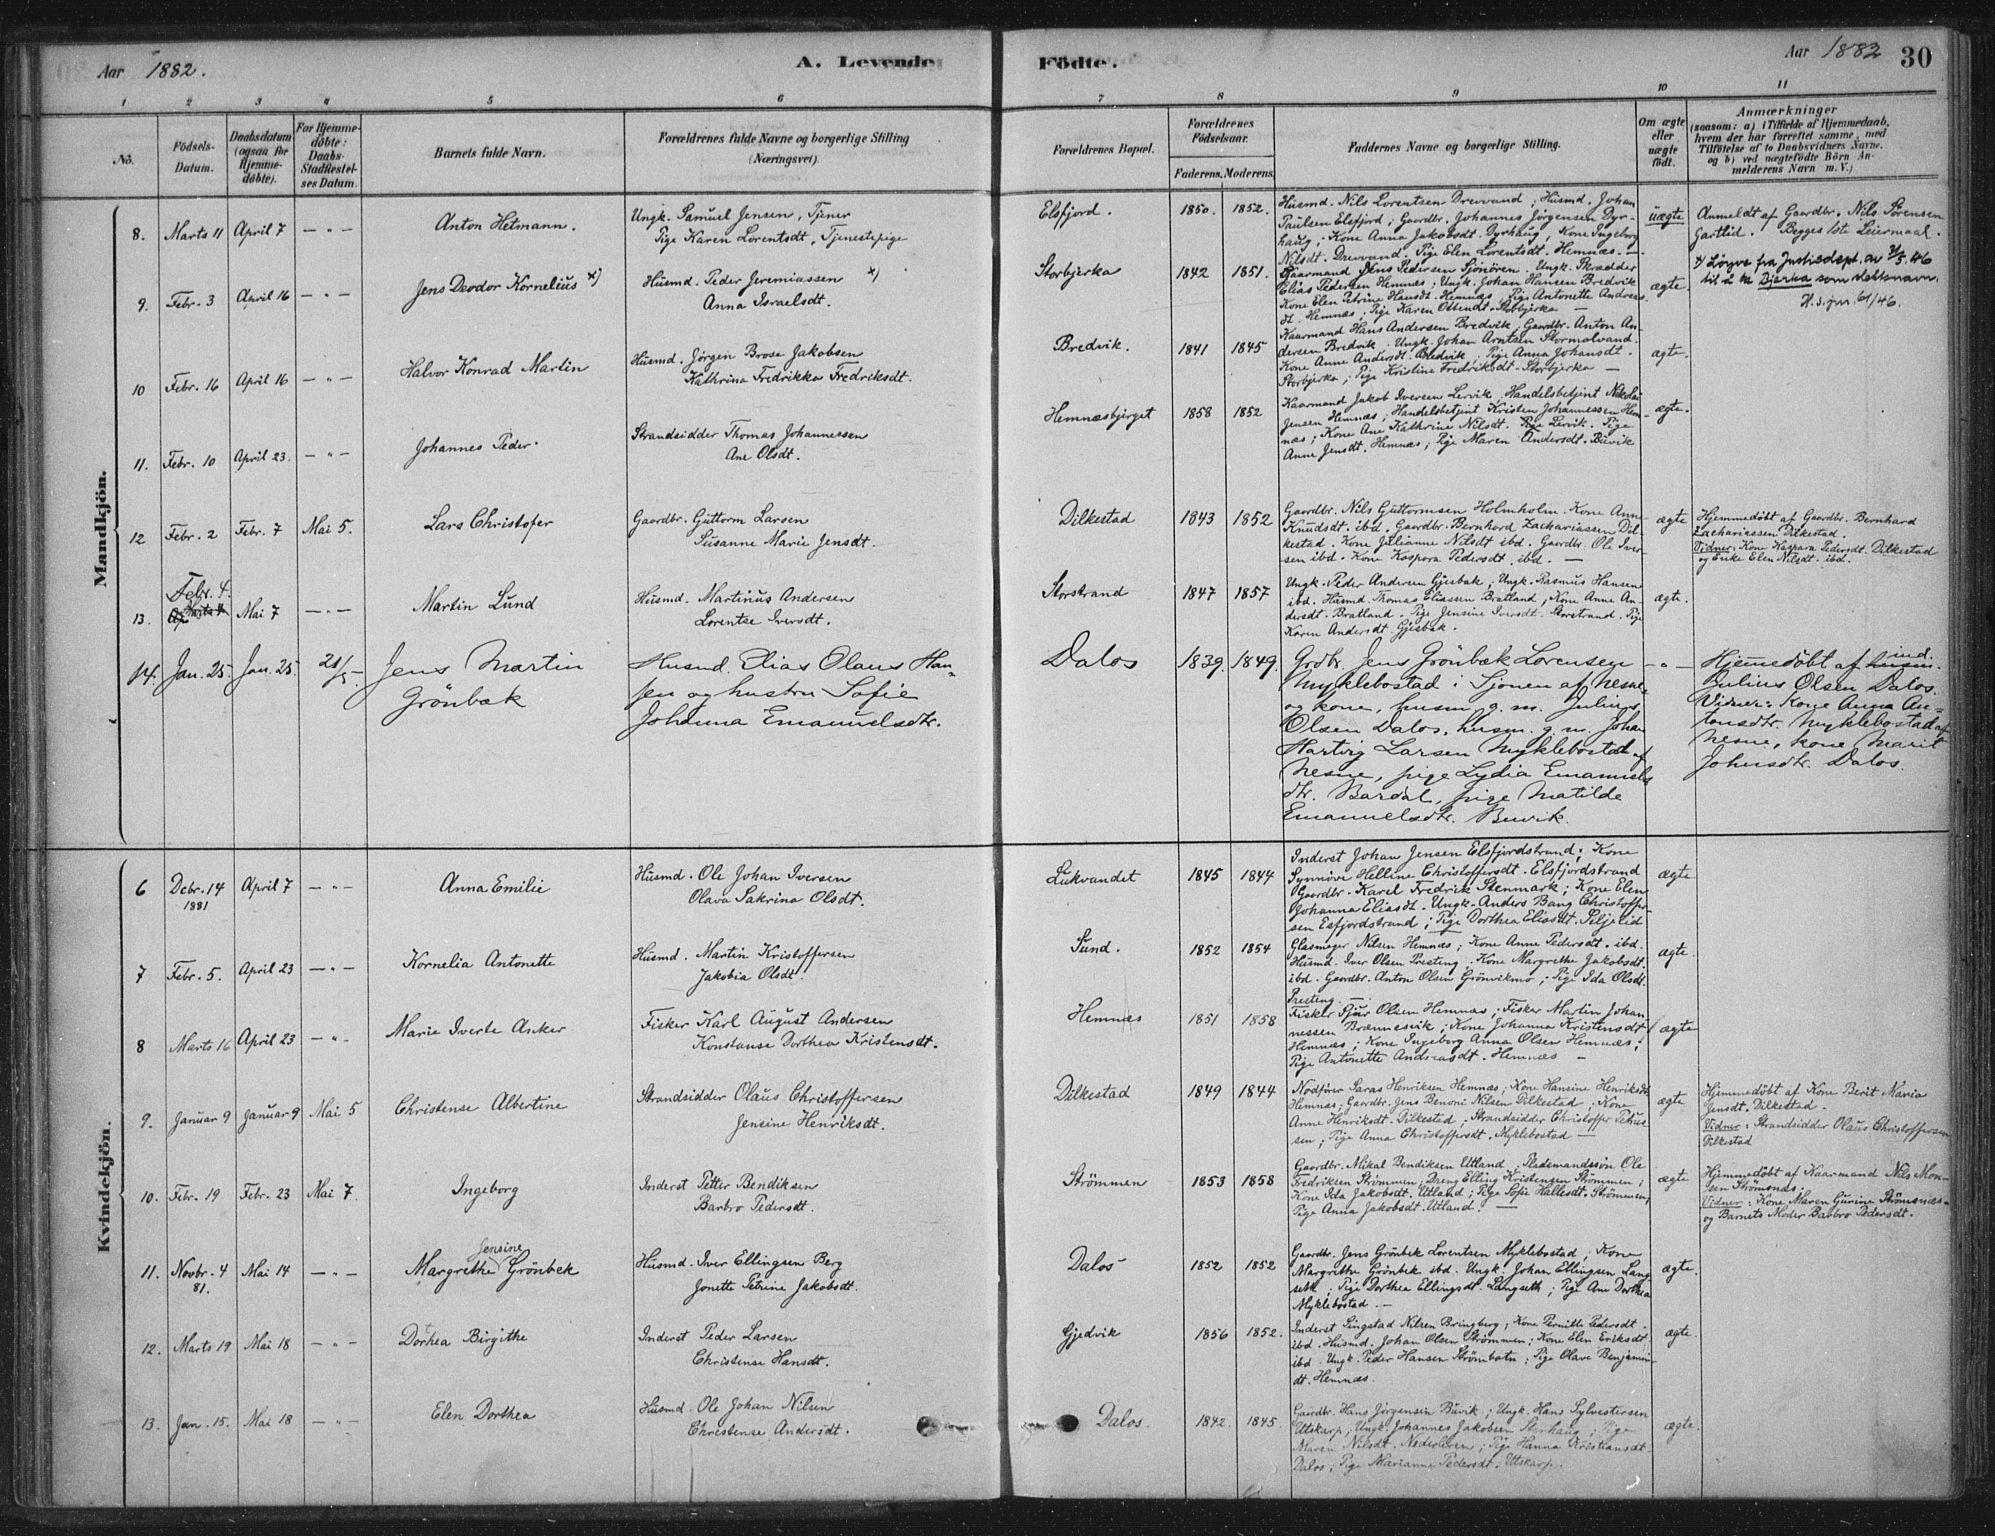 Aar 1882.
A. Levende Födte.
Aar 1882
30
1 2 3 4 5 6 7 8 9 10 11
No.
Födsels-Datum.
Daabsdatum (ogsaa for Hjemme-döbte).
For Hjemme-döbte: Daabs-Stadfæstel-ses Datum.
Barnets fulde Navn.
Forældrenes fulde Navne og borgerlige Stilling (Næringsvei).
Forældrenes Bopæl.
Forældrenes Födselsaar.
Faderens. Moderens.
Faddernes Navne og borgerlige Stilling.
Om ægte eller uægte födt.
Anmærkninger
(saasom: a) i Tilfælde af Hjemmedaab,
hvem der har forrettet samme, med
Tilföielse af to Daabsvidners Navne,
og b) ved uægtefödte Börn An-
melderens Navn m. V.)
Mandkjön.
8. Marts 11 April 7 — " — Anton Hetmann.
Ungk. Samuel Jensen, Tjener
Pige Karen Lorentsdt, Tjenestepige
Elsfjord. 1850. 1852.
Husmd. Nils Lorentsen Drevvand; Husmd. Johan
Paulsen Elsfjord; Gaardbr. Johannes Jörgensen Dyr-
haug; Kone Anna Jakobsdt. Dyrhaug; Kone Ingeborg
Nilsdt. Drevvand. Pige Elen Lorentsdt. Hemnæs. —
uægte
Anmeldt af Gaardbr. Nils Sörensen
Gartlid. Begges 1ste Leiermaal.
9. Febr. 3 April 16 — " — Jens Deodor Kornelius x)
Husmd. Peder Jeremiassen x)
Anna Israelsdt.
Storbjerka 1842 1851.
Kaarmand Jens Pedersen Sjönören. Ungk. Skrædder
Elias Pedersen Hemnæs; Ungk. Johan Hansen Bredvik
Kone Elen Petrine Hansdt. Hemnæs, Pige Antonette Andreas
dt. Hemnæs, Pige Karen Olsdt. Storbjerka —
ægte.
x) Løyve fra Justisdept. av 2/5 46
til å ta Bjerka som slektsnavn.
H.s. jnr. 61/46.
10 Febr. 16 April 16 — " — Halvor Konrad Martin
Husmd. Jörgen Brose Jakobsen
Kathrina Fredrikka Fredriksdt.
Bredvik. 1841 1845
Kaarmand Hans Andersen Bredvik, Gaardbr. Anton An-
dersen Bredvik. Ungk. Johan Arntsen Stormolvand.
Kone Anne Andersdt. Bredvik, Pige Anna Johansdt.
Storbjerka; Pige Kristine Fredriksdt. Storbjerka —
ægte.
11. Febr. 10 April 23. — " — Johannes Peder.
Strandsidder Thomas Johannessen
Ane Olsdt.
Hemnæsbjerget 1858 1852
Kaarmand Jakob Iversen Lervik; Handelsbetjent Nikolai
Jensen Hemnæs; Handelsbetjent Kristen Johannessen Hem-
næs; Kone Ane Kathrine Nilsdt. Lervik. Pige
Anne Jensdt. Hemnæs; Pige Maren Andersdt. Buvik
ægte.
12 Febr. 2 Febr. 7 Mai 5. Lars Christofer
Gaardbr. Guttorm Larsen
Susanne Marie Jensdt.
Dilkestad 1843 1852
Gaardbr. Nils Guttormsen Holmholm. Kone Anne
Knudsdt. ibd. Gaardbr. Bernhard Zachariassen Dil-
kestad. Kone Julianne Nilsdt ibd. Gaardbr. Ole Iver-
sen ibd. Kone Kaspara Pedersdt. ibd. —
ægte
Hjemmedöbt af Gaardbr. Bernhard
Zachariassen Dilkestad.
Vidner: Kone Kaspara Pedersdt. Dilkestad
og Enke Elen Nilsdt. ibd.
13. Febr. 4. Mai 7 — " — Martin Lund
Husmd. Martinus Andersen
Lorentse Iversdt.
Storstrand 1847 1857
Ungk. Peder Andersen Gjesbak; Ungk. Rasmus Hansen
ibd. Husmd. Thomas Eliassen Bratland, Kone Anne An-
dersdt. Bratland. Pige Jensine Iversdt. Storstrand. Pige
Karen Andersdt Gjesbak.
ægte.
14. Jan. 25. Jan. 25. 21/5 Jens Martin
Grönbæk
Husmd. Elias Olaus Han-
sen og hustru Sofie
Johanna Emanuelsdtr.
Dalos 1839. 1849.
Grdbr. Jens Grönbæk Lorensen
Myklebostad i Sjonen af Nesne
og kone, husm. g. m. Julius
Olsen Dalos, husm. g. m. Johan
Hartvig Larsen Myklebostad af
Nesne, pige Lydia Emanuels
dtr. Bardal, pige Matilde
Emanuelsdtr. Buvik.
— " —
Hjemmedöbt af ind.
Julius Olsen Dalos.
Vidner: Kone Anna An-
tonsdtr. Myklebostad af
Nesne, kone Marit
Johnsdtr. Dalos.
Kvindekjön.
6 Debr. 14 1881 April 7 — " — Anna Emilie
Husmd. Ole Johan Iversen
Olava Sakrina Olsdt.
Lukvandet 1845 1844
Inderst Johan Jensen Elsfjordstrand; Kone
Synnöve Helline Christoffersdt. Elsfjordstrand
Gaardbr. Karel Fredrik Stenmark; Kone Elen
Johanna Eliasdt. Ungk. Anders Bang Christoffer-
sen Esfjordstrand; Pige Dorthea Eliasdt. Siljelid
ægte
7 Febr. 5. April 23 — " — Kornelia Antonette
Husmd. Martin Kristoffersen
Jakobia Olsdt
Sund. 1852 1854
Glasmager Nilsen Hemnæs; Kone Anne Pedersdt. ibd.
Husmd. Iver Olsen Presting. Kone Margrethe Jakobsdt.
ibd. Gaardbr. Anton Olsen Grönvikmo; Pige Ida Olsdt.
Presting. —
ægte.
8 Marts 16 April 23 — " — Marie Iverte Anker
Fisker Karl August Andersen
Konstanse Dorthea Kristensdt.
Hemnæs 1851 1858
Fisker Sjur Olsen Hemnæs; Fisker Martin Johan
nessen Brænnesvik; Kone Johanna Kristensdt
Hemnæs; Kone Ingeborg Anna Olsen Hemnæs;
Pige Antonette Andreasdt. Hemnæs —
ægte
9. Januar 9 Januar 9 Mai 5 Christense Albertine
Strandsidder Olaus Christoffersen
Jensine Henriksdt.
Dilkestad 1849 1844
Nodfører Saras Henriksen Hemnæs; Kone Hansine Henriksdt.
Hemnæs; Gaardbr. Jens Benoni Nilsen Dilkestad; Kone
Anne Henriksdt. Dilkestad; Strandsidder Christoffer Petrus-
sen; Pige Anna Christoffersdt. Myklebostad —
ægte
Hjemmedöbt af Kone Berit Maria
Jensdt. Dilkestad.
Vidner: Strandsidder Olaus Christoffersen
Dilkestad
10. Febr. 19 Febr. 23 Mai 7. Ingeborg
Inderst Petter Bendiksen
Barbro Pedersdt.
Strömmen 1853 1858
Gaardbr. Mikal Bendiksen Utland; Pladsmandssön Ole
Fredriksen Strömmen; Dreng Elling Kristensen Strömmen;
Kone Ida Jakobsdt. Utland; Pige Sofie Hallesdt. Strömmen;
Pige Anna Jakobsdt. Utland. —
ægte
Hjemmedöbt af Kaarmand Nils Mon-
sen Strömsnæs.
Vidner: Kone Maren Gurine Strömsnæs
og Barnets Moder Barbro Pedersdt.
11. Novbr. 4 81. Mai 14 — " — Margrethe Jensine Grönbek
Husmd. Iver Ellingsen Berg
Jonette Petrine Jakobsdt.
Dalos 1852 1852
Gaardbr. Jens Grönbek Lorentsen Myklebostad; Kone
Margrethe Grönbek ibd. Ungk. Johan Ellingsen Lang
seth; Pige Dorthea Ellingsdt. Langseth; Pige Ane Dorthea
Myklebostad. —
ægte.
12. Marts 19 Mai 18 — " — Dorthea Birgithe
Inderst Peder Larsen
Christense Hansdt.
Gjedvik 1856 1852.
Inderst Pingstad Nilsen Bringberg; Kone Pernille Pedersdt.
ibd. Husmd. Johan Olsen Strömmen; Kone Elen Eriksdt
ibd. Ungk. Peder Hansen Strömbotn; Pige Olave Benjamin
dt. Hemnæs.
ægte.
13. Jan. 15. Mai 18 — " — Elen Dorthea
Husmd. Ole Johan Nilsen
Christense Andersdt.
Dalos. 1842. 1845.
Gaardbr. Hans Jörgensen Buvik; Ungk. Hans Sylvestersen
Utskarp, Ungk. Johannes Jakobsen Stenhaug; Pige
Maren Nilsdt. Nederleren; Pige Hanna Kristiansdt.
Dalos; Pige Marianne Pedersdt. Utskarp.
ægte.